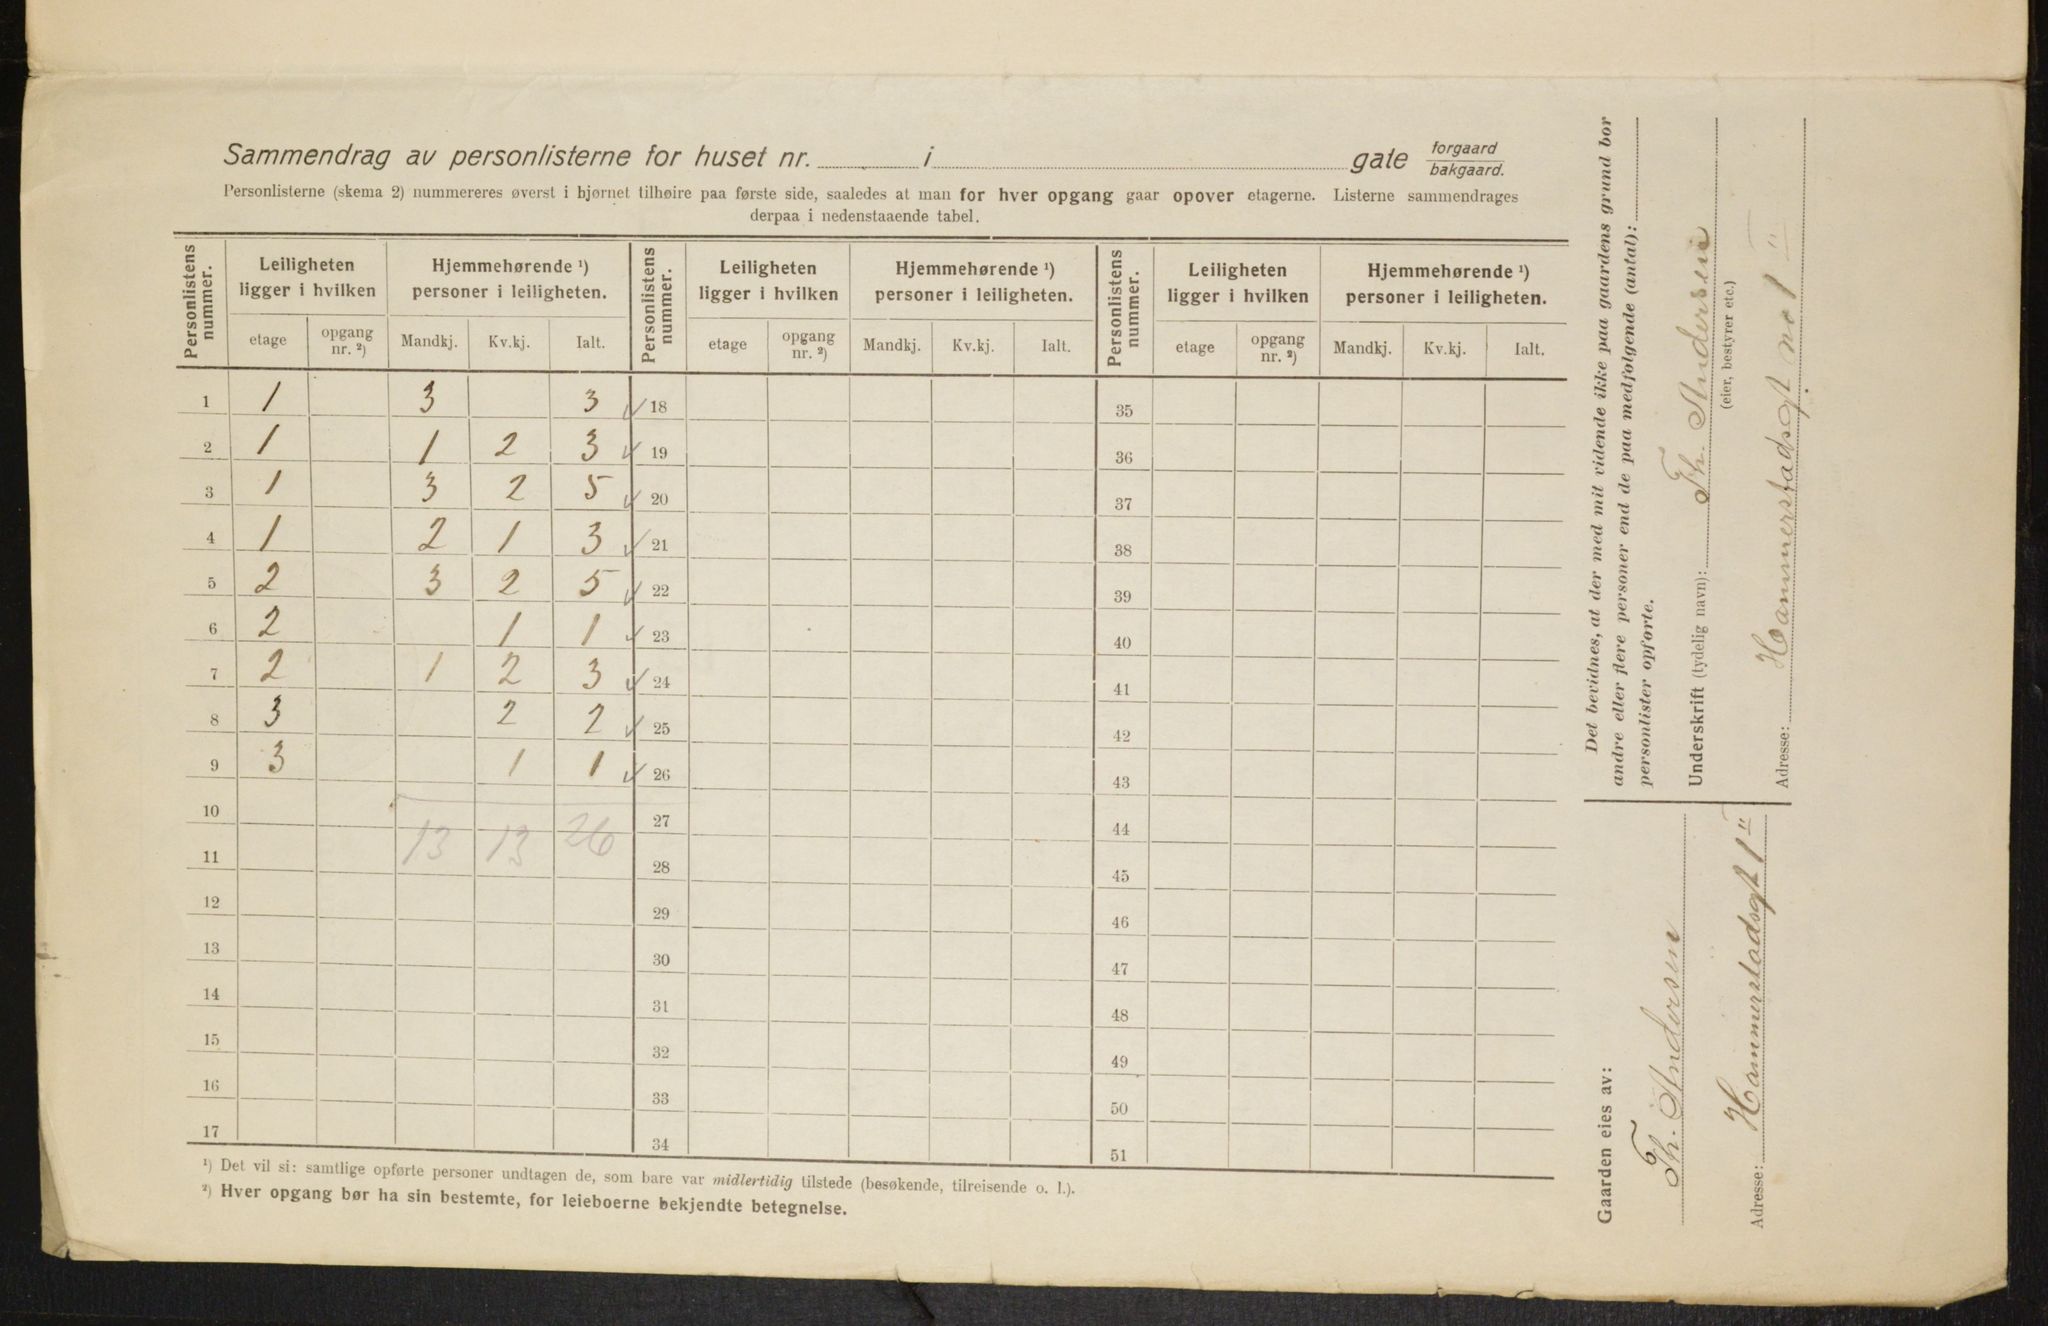 Sammendrag av personlisterne for huset nr. i gate forgaard bakgaard.
Personlisterne (skema 2) nummereres øverst i hjørnet tilhøire paa første side, saaledes at man for hver opgang gaar opover etagerne. Listerne sammendrages
derpaa i nedenstaaende tabel.
Personlistens nummer. Leiligheten ligger i hvilken Hjemmehørende ¹) personer i leiligheten. Personlistens nummer. Leiligheten ligger i hvilken Hjemmehørende ¹) personer i leiligheten. Personlistens nummer. Leiligheten ligger i hvilken Hjemmehørende ¹) personer i leiligheten.
etage opgang nr. ²) Mandkj. Kv.kj. Ialt. etage opgang nr. ²) Mandkj. Kv.kj. Ialt. etage opgang nr. ²) Mandkj. Kv.kj. Ialt.
1 1 3 3 ✓ 18 35
2 1 1 2 3 ✓ 19 36
3 1 3 2 5 ✓ 20 37
4 1 2 1 3 ✓ 21 38
5 2 3 2 5 ✓ 22 39
6 2 1 1 ✓ 23 40
7 2 1 2 3 ✓ 24 41
8 3 2 2 ✓ 25 42
9 3 1 1 ✓ 26 43
10 27 44
11 13 13 26 28 45
12 29 46
13 30 47
14 31 48
15 32 49
16 33 50
17 34 51
¹) Det vil si: samtlige opførte personer undtagen de, som bare var midlertidig tilstede (besøkende, tilreisende o. l.).
²) Hver opgang bør ha sin bestemte, for leieboerne bekjendte betegnelse.
Det bevidnes, at der med mit vidende ikke paa gaardens grund bor
andre eller flere personer end de paa medfølgende (antal):
personlister opførte.
Underskrift (tydelig navn): Th. Andersen
(eier, bestyrer etc.)
Adresse: Hammerstadsgt. no 1 II
Gaarden eies av:
Th. Andersen
Adresse: Hammerstadsgt 1 II